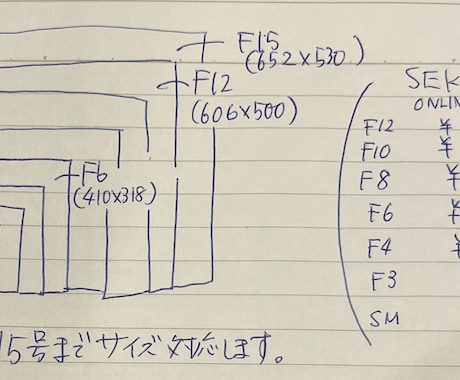 F15
(652×530)
F12
(606×500)
F6
(410×318)
SEK
ONLIN
F12 ¥
F10 ¥
F8 ¥
F6 ¥
F4 ¥
F3
SM
15号までサイズ対応します。